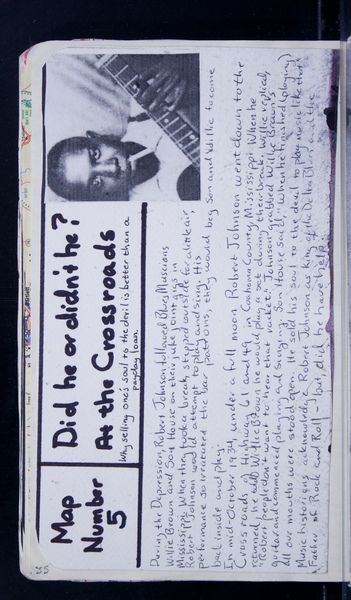 Map
Number
5
Did he or didn't he?
At the Crossroads
Why selling one's soul to the devil is better than a
payday loan.
During the Depression, Robert Johnson followed Blues Musicians
Willie Brown and Son House on their juke joint gigs in
Mississippi. When they took a break, stepped outside for a little air,
Robert Johnson would attempt to play and sing. His
performance so irritated the bar patrons, they would beg Son and Willie to come
back inside and play.
In mid-October 1934, under a full moon Robert Johnson went down to the
Crossroads of Highway 61 and 49 in Coahoma County, Mississippi. When he
returned, he told Willie Brown he would play a set during their break. Willie replied,
"Robert people don't want to hear that racket." Johnson grabbed Willie Brown's
guitar and commenced playing and singing. Son House said, "When he finished (playing)
all our mouths were stood open. He sold his soul to the devil to play music like that"
Music historians acknowledge Robert Johnson as King of the Delta Blues and the
Father of Rock and Roll - but, did he have help?
35